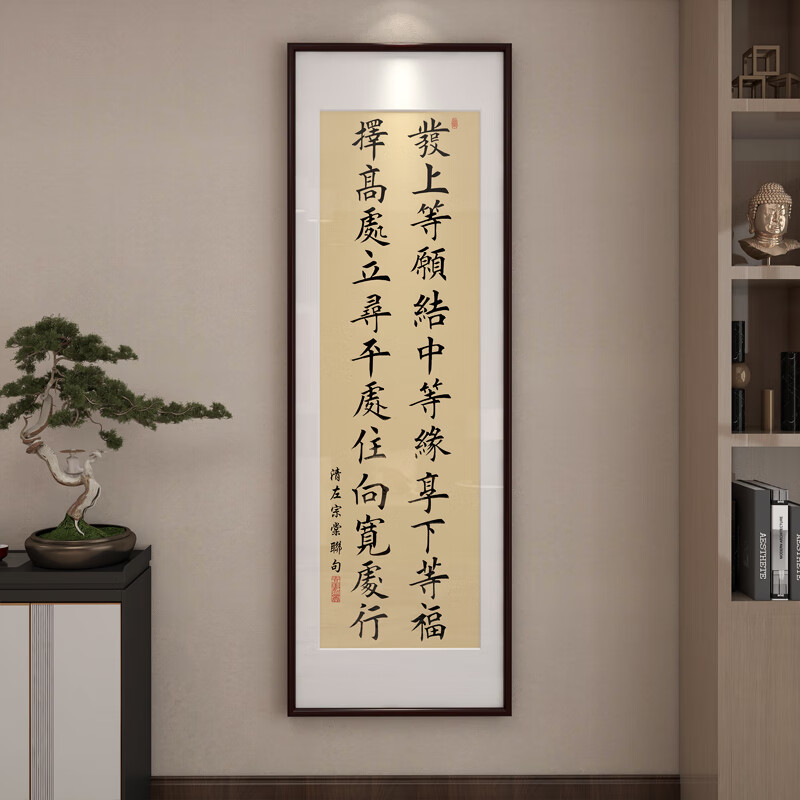 發上等願結中等緣享下等福
擇高處立尋平處住向寬處行
清左宗棠聯句
AESTHETE
AESTHETE